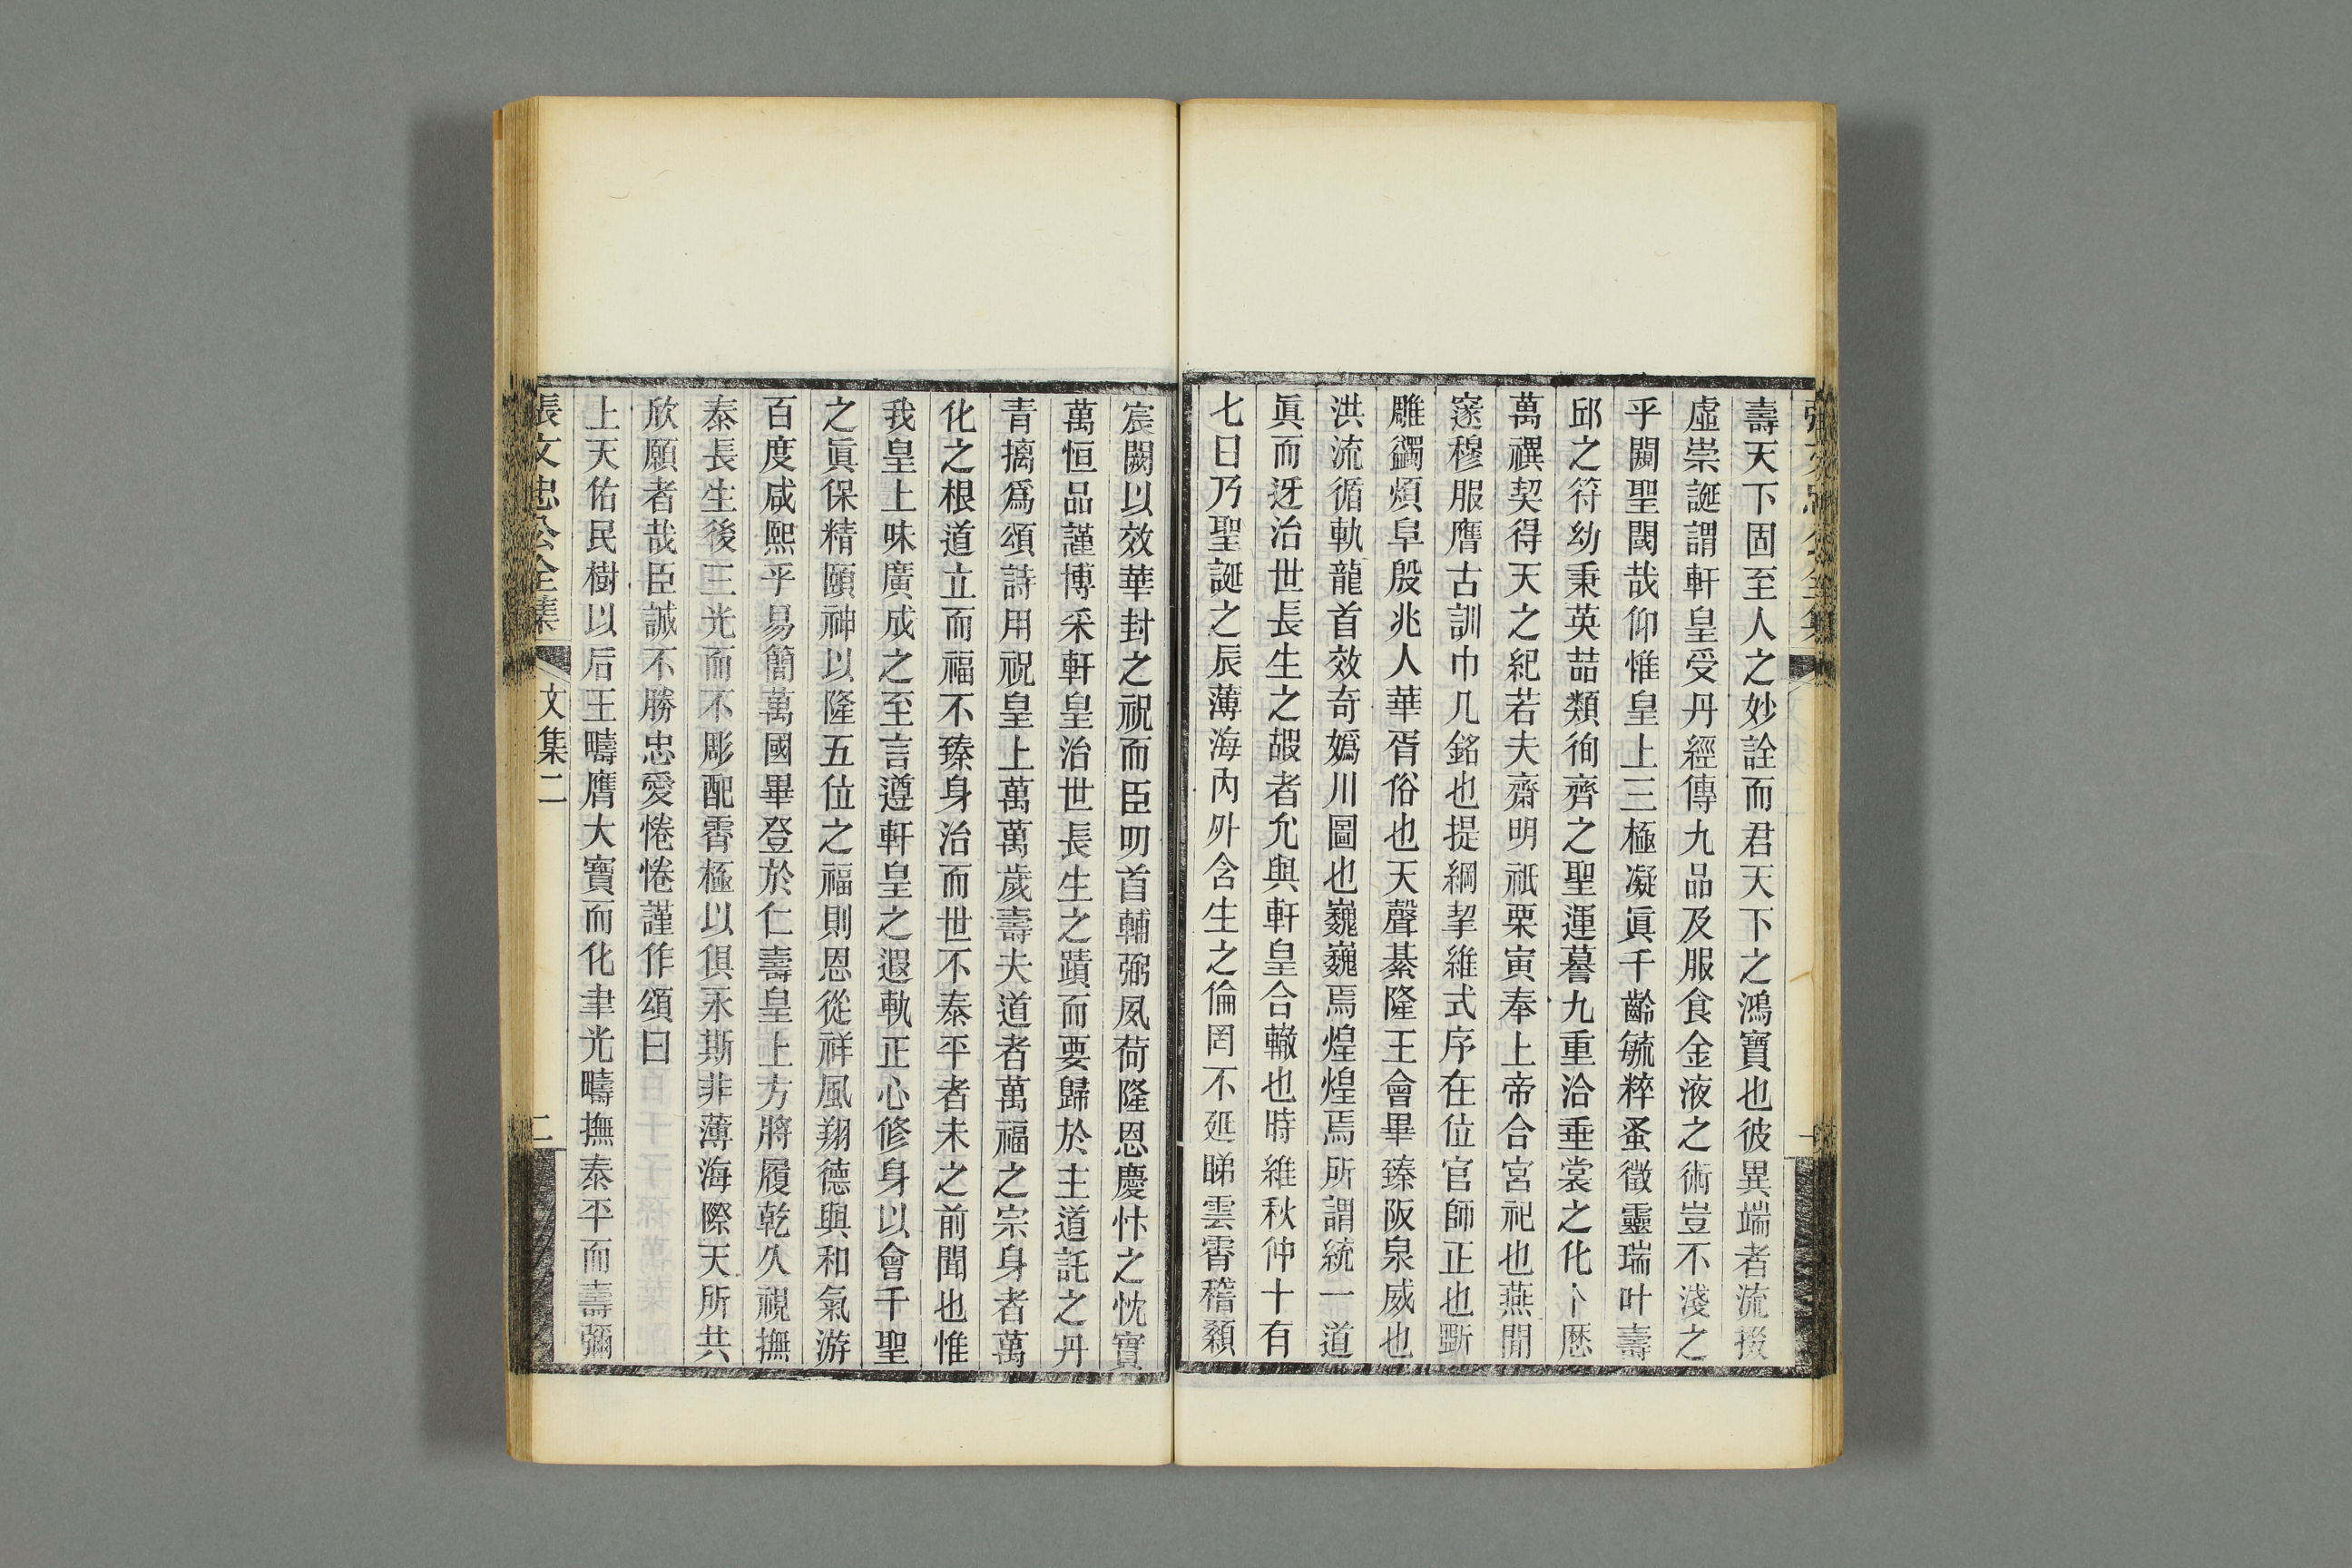 壽天下固至人之妙詮而君天下之鴻寶也彼異端者流掇
虛崇誕謂軒皇受丹經傳九品及服食金液之術豈不淺之
乎闚聖閾哉仰惟皇上三極凝眞千齡毓粹蚤徵靈瑞叶壽
邱之符幼秉英喆類徇齊之聖運薹九重洽垂裳之化卜歷
萬禩契得天之紀若夫齋明祇栗寅奉上帝合宮祀也燕閒
邃穆服膺古訓巾几銘也提綱挈維式序在位官師正也斲
雕蠲煩阜殷兆人華胥俗也天聲綦隆王會畢臻阪泉威也
洪流循軌龍首效奇嬀川圖也巍巍焉煌煌焉所謂統一道
眞而迓治世長生之嘏者允與軒皇合轍也時維秋仲十有
七日乃聖誕之辰薄海內外含生之倫罔不延睇雲霄稽顙
宸闕以效華封之祝而臣叨首輔弼夙荷隆恩慶忭之忱實
萬恒品謹博采軒皇治世長生之蹟而要歸於主道託之丹
青摛爲頌詩用祝皇上萬萬歲壽夫道者萬福之宗身者萬
化之根道立而福不臻身治而世不泰平者未之前聞也惟
我皇上味廣成之至言遵軒皇之遐軌正心修身以會千聖
之眞保精頤神以隆五位之福則恩從祥風翔德與和氣游
百度咸熙乎易簡萬國畢登於仁壽皇上方將履乾久視撫
泰長生後三光而不彫配霄極以俱永斯非薄海際天所共
欣願者哉臣誠不勝忠愛惓惓謹作頌曰
上天佑民樹以后王疇膺大寶而化聿光疇撫泰平而壽彌
張文忠公全集
文集二
二